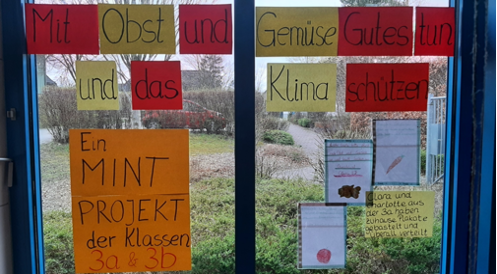 Mit Obst und Gemüse Gutes tun
und das Klima schützen
Ein
MINT
PROJEKT
der Klassen
3a & 3b
Clara und
Charlotte aus
der 3a haben
zuhause Plakate
gebastelt und
überall verteilt